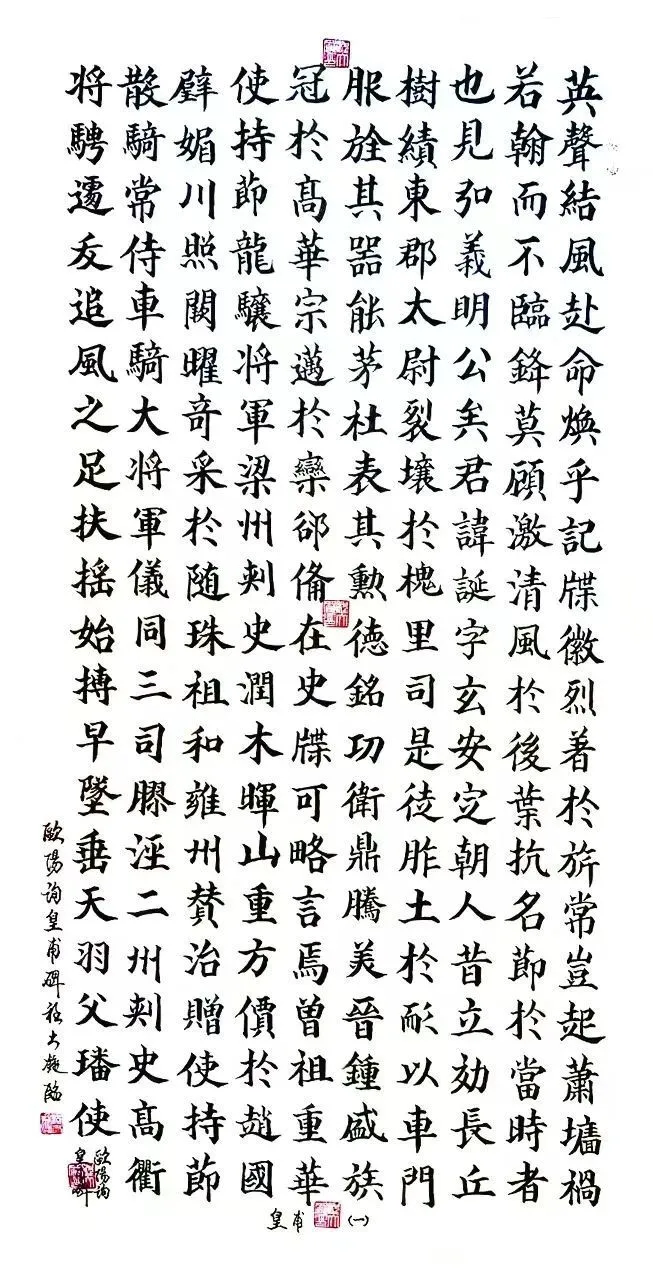 英聲結風赴命煥乎記牒徽烈著於旂常豈起蕭墻禍
若翰而不臨鋒莫顧激清風於後葉抗名節於當時者
也見弘義明公矣君諱誕字玄安定朝人昔立効長丘
樹績東郡太尉裂壤於槐里司是徒胙土於耏以車門
服旌其器能茅社表其勲德銘功衛鼎騰美晉鍾盛族
冠於高華宗邁於欒郤俻在史牒可略言焉曾祖重華
使持節龍驤将軍梁州刺史潤木暉山重方價於趙國
璧媚川照闕曜奇采於随珠祖和雍州賛治贈使持節
散騎常侍車騎大将軍儀同三司膠涇二州刺史高衢
将騁遽夭追風之足扶揺始摶早墜垂天羽父璠使
歐陽詢皇甫碑
皇甫 (一)